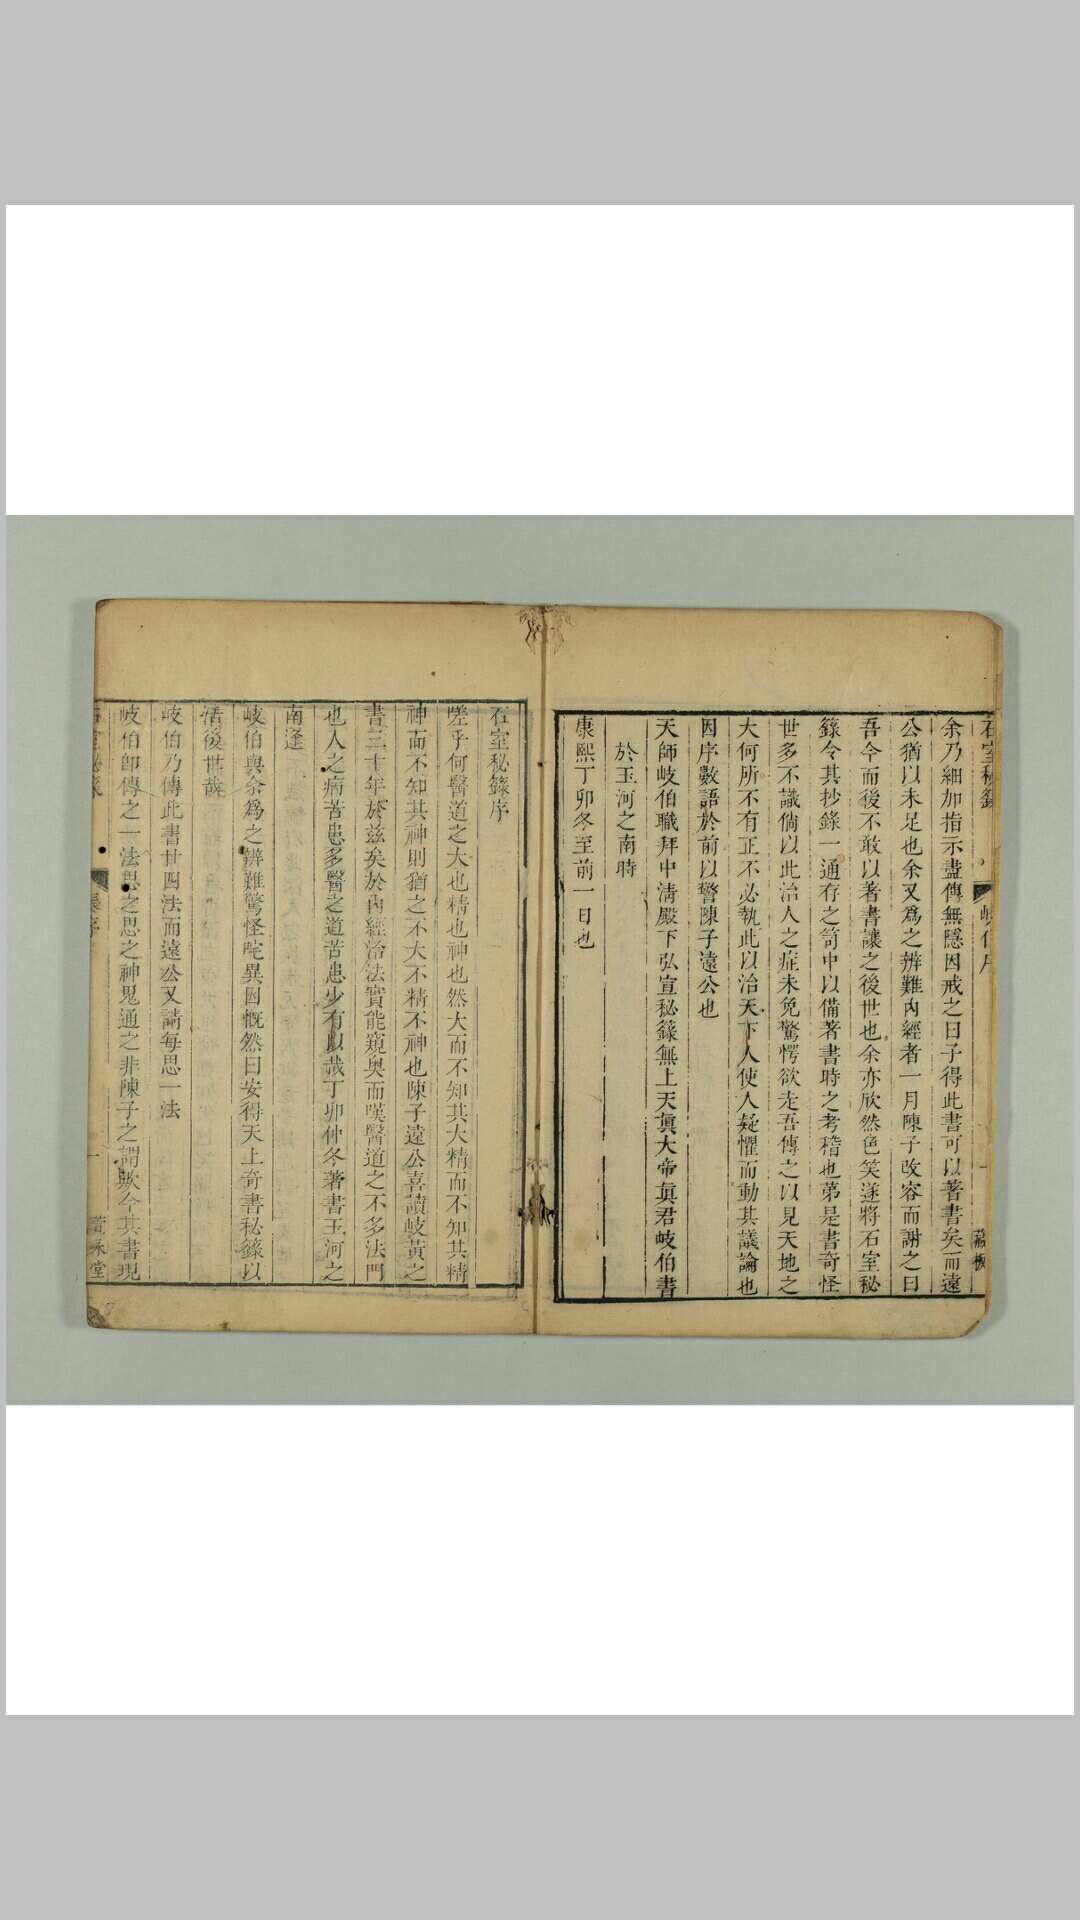 石室秘籙
岐伯序
藏板
余乃細加指示盡傳無隱因戒之曰子得此書可以著書矣而遠
公猶以未足也余又爲之辨難內經者一月陳子改容而謝之曰
吾今而後不敢以著書讓之後世也余亦欣然色笑遂將石室秘
籙令其抄錄一通存之笥中以備著書時之考稽也第是書奇怪
世多不識倘以此治人之症未免驚愕欲走吾傳之以見天地之
大何所不有正不必執此以治天下人使人疑懼而動其議論也
因序數語於前以警陳子遠公也
天師岐伯職拜中清殿下弘宣秘籙無上天眞大帝眞君岐伯書
於玉河之南時
康熙丁卯冬至前一日也
石室秘籙序
嗟乎何醫道之大也精也神也然大而不知其大精而不知其精
神而不知其神則猶之不大不精不神也陳子遠公喜讀岐黃之
書三十年於茲矣於內經治法實能窺奥而嘆醫道之不多法門
也人之病苦患多醫之道苦患少有以哉丁卯仲冬著書玉河之
南逢
岐伯與余爲之辨難驚怪咤異因慨然曰安得天上奇書秘籙以
活後世哉
岐伯乃傳此書廿四法而遠公又請每思一法
岐伯卽傳之一法思之思之神鬼通之非陳子之謂歟今其書現
石室秘籙
張序
一
萱永堂